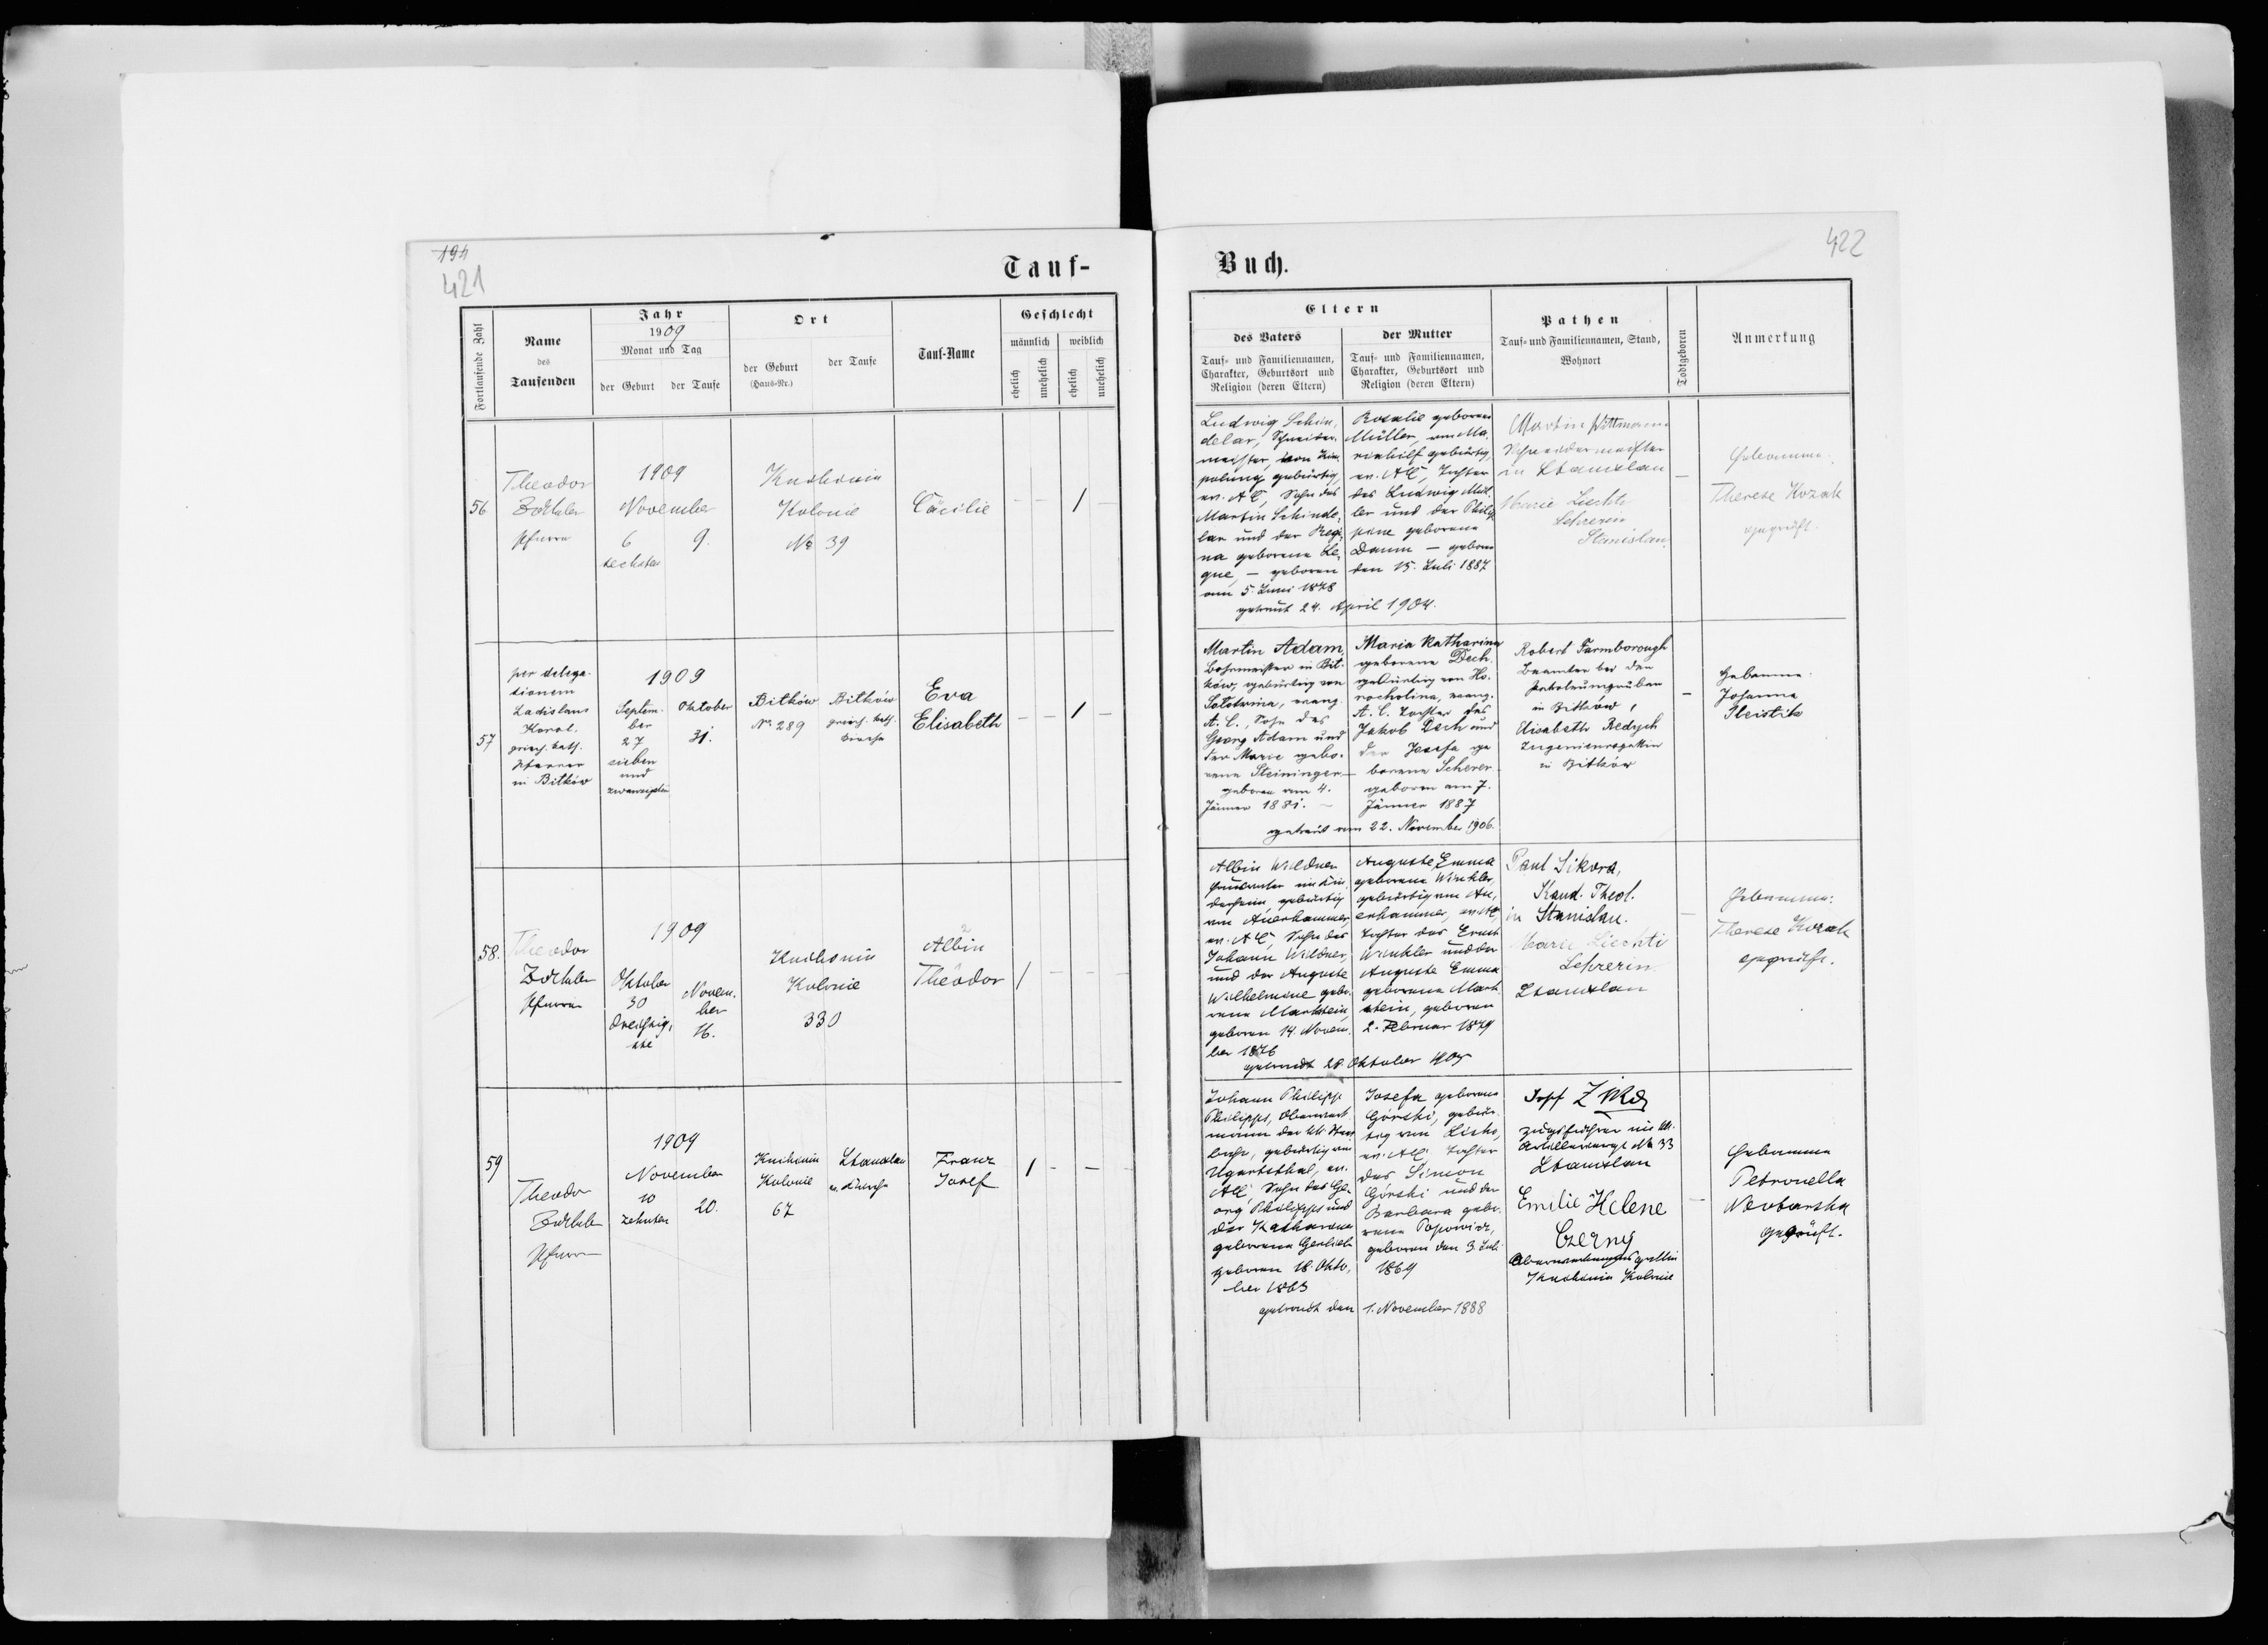 194
421
422
Tauf-
Buch.
Fortlaufende Zahl
Name
des
Taufenden
Jahr
1909
Monat und Tag
der Geburt
der Taufe
Ort
der Geburt
(Haus-Nr.)
der Taufe
Tauf-Name
Geschlecht
männlich
weiblich
ehelich
unehelich
ehelich
unehelich
Eltern
des Vaters
Tauf- und Familiennamen,
Charakter, Geburtsort und
Religion (deren Eltern)
der Mutter
Tauf- und Familiennamen,
Charakter, Geburtsort und
Religion (deren Eltern)
Pathen
Tauf- und Familiennamen, Stand,
Wohnort
Todtgeboren
Anmerkung
56
Theodor
Zöckler
Pfarrer
1909
November
6
sechster
9.
Knihinin
Kolonie
No 39
Cäcilie
1
Ludwig Schin-
delar, Schneider-
meister,
gebürtig,
ev. AC, Sohn des
Martin Schinde-
lar und der Regi-
na geborene Le-
que, — geboren
am 5. Juni 1878
Rosalie geborene
Müller, von Ma-
riahilf gebürtig,
ev. AC, Tochter
des Ludwig Mül-
ler und der Philip-
pine geborene
Daum — geboren
den 15. Juli 1887
getraut 24. April 1904.
Martin Wittmann
Schneidermeister
in Stanislau
Marie Liechti
Lehrerin
Stanislau.
Hebamme
Therese Kozak
geprüft.
57
per delega-
tionem
Ladislaus
Korol,
griech. kath.
Pfarrer
in Bitków
1909
Septem-
ber
27
sieben
und
zwanzigsten
Oktober
31.
Bitków
No 289
Bitków
griech. kath.
Kirche
Eva
Elisabeth
1
Martin Adam,
Bohrmeister in Bit-
ków, gebürtig von
Solotwina, evang.
A. C., Sohn des
Georg Adam und
der Marie gebo-
rene Steininger —
geboren am 4.
Jänner 1881. —
Maria Katharina
geborene Dech
gebürtig von Ho-
rocholina, evang.
A. C. Tochter des
Jakob Dech und
der Josefa ge
borene Scherer
geboren am 7.
Jänner 1887
getraut am 22. November 1906.
Robert Farmborough
Beamter bei den
Petroleumgruben
in Bitków,
Elisabeth Redych
Ingenieursgattin
in Bitków
Hebamme
Johanna
58.
Theodor
Zöckler
Pfarrer
1909
Oktober
30
dreißig-
ste
Novem-
ber
16.
Knihinin
Kolonie
330
Albin
Theodor
1
Albin Wildner
gebürtig
von Auerhammer,
ev. AC, Sohn des
Johann Wildner
und der Auguste
Wilhelmine gebo-
rene Markstein,
geboren 14. Novem-
ber 1876
Auguste Emma
geborene Winkler,
gebürtig von Au-
erhammer, ev. AC,
Tochter des Ernst
Winkler und der
Auguste Emma
geborene Mark-
stein, geboren
2. Februar 1879
getraut 28. Oktober 1905
Paul Sikora,
Kand. Theol.
in Stanislau.
Marie Liechti
Lehrerin
Stanislau
Hebamme:
Therese Kozak
geprüft.
59
Theodor
Zöckler
Pfarrer
1909
November
10
zehnten
20.
Knihinin
Kolonie
67
Stanislau
ev. Kirche
Franz
Josef
1
Johann Philipp
Philipps,
gebürtig von
Ugartsthal, ev.
AC, Sohn des Ge-
org Philipps und
der Katharina
geborene Gerlich
geboren 18. Okto-
ber 1863
Josefa geborene
Górski, gebür-
tig von
ev. AC, Tochter
des Simon
Górski und der
Barbara gebo-
rene Popowicz,
geboren den 3. Juli
1869
getraut den 1. November 1888
Josef
Zugsführer im
No 33
Stanislau
Emilie Helene
Czerny
Knihinin Kolonie
Hebamme
Petronella
geprüft.